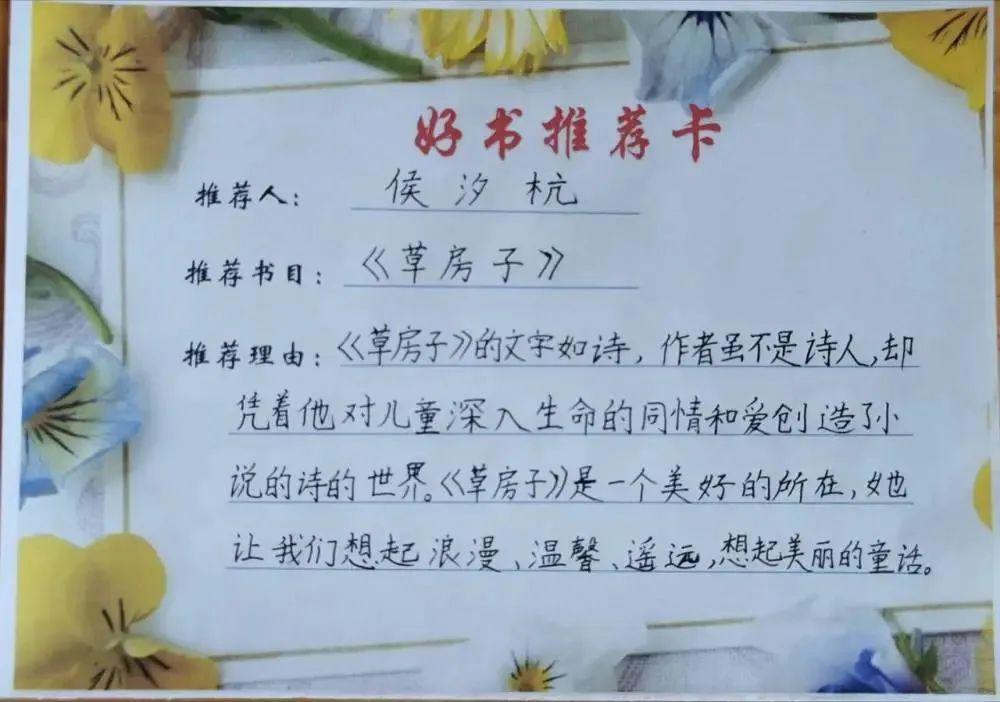 好书推荐卡
推荐人：侯汐杭
推荐书目：《草房子》
推荐理由：《草房子》的文字如诗，作者虽不是诗人，却
凭着他对儿童深入生命的同情和爱创造了小
说的诗的世界。《草房子》是一个美好的所在，她
让我们想起浪漫、温馨、遥远，想起美丽的童话。